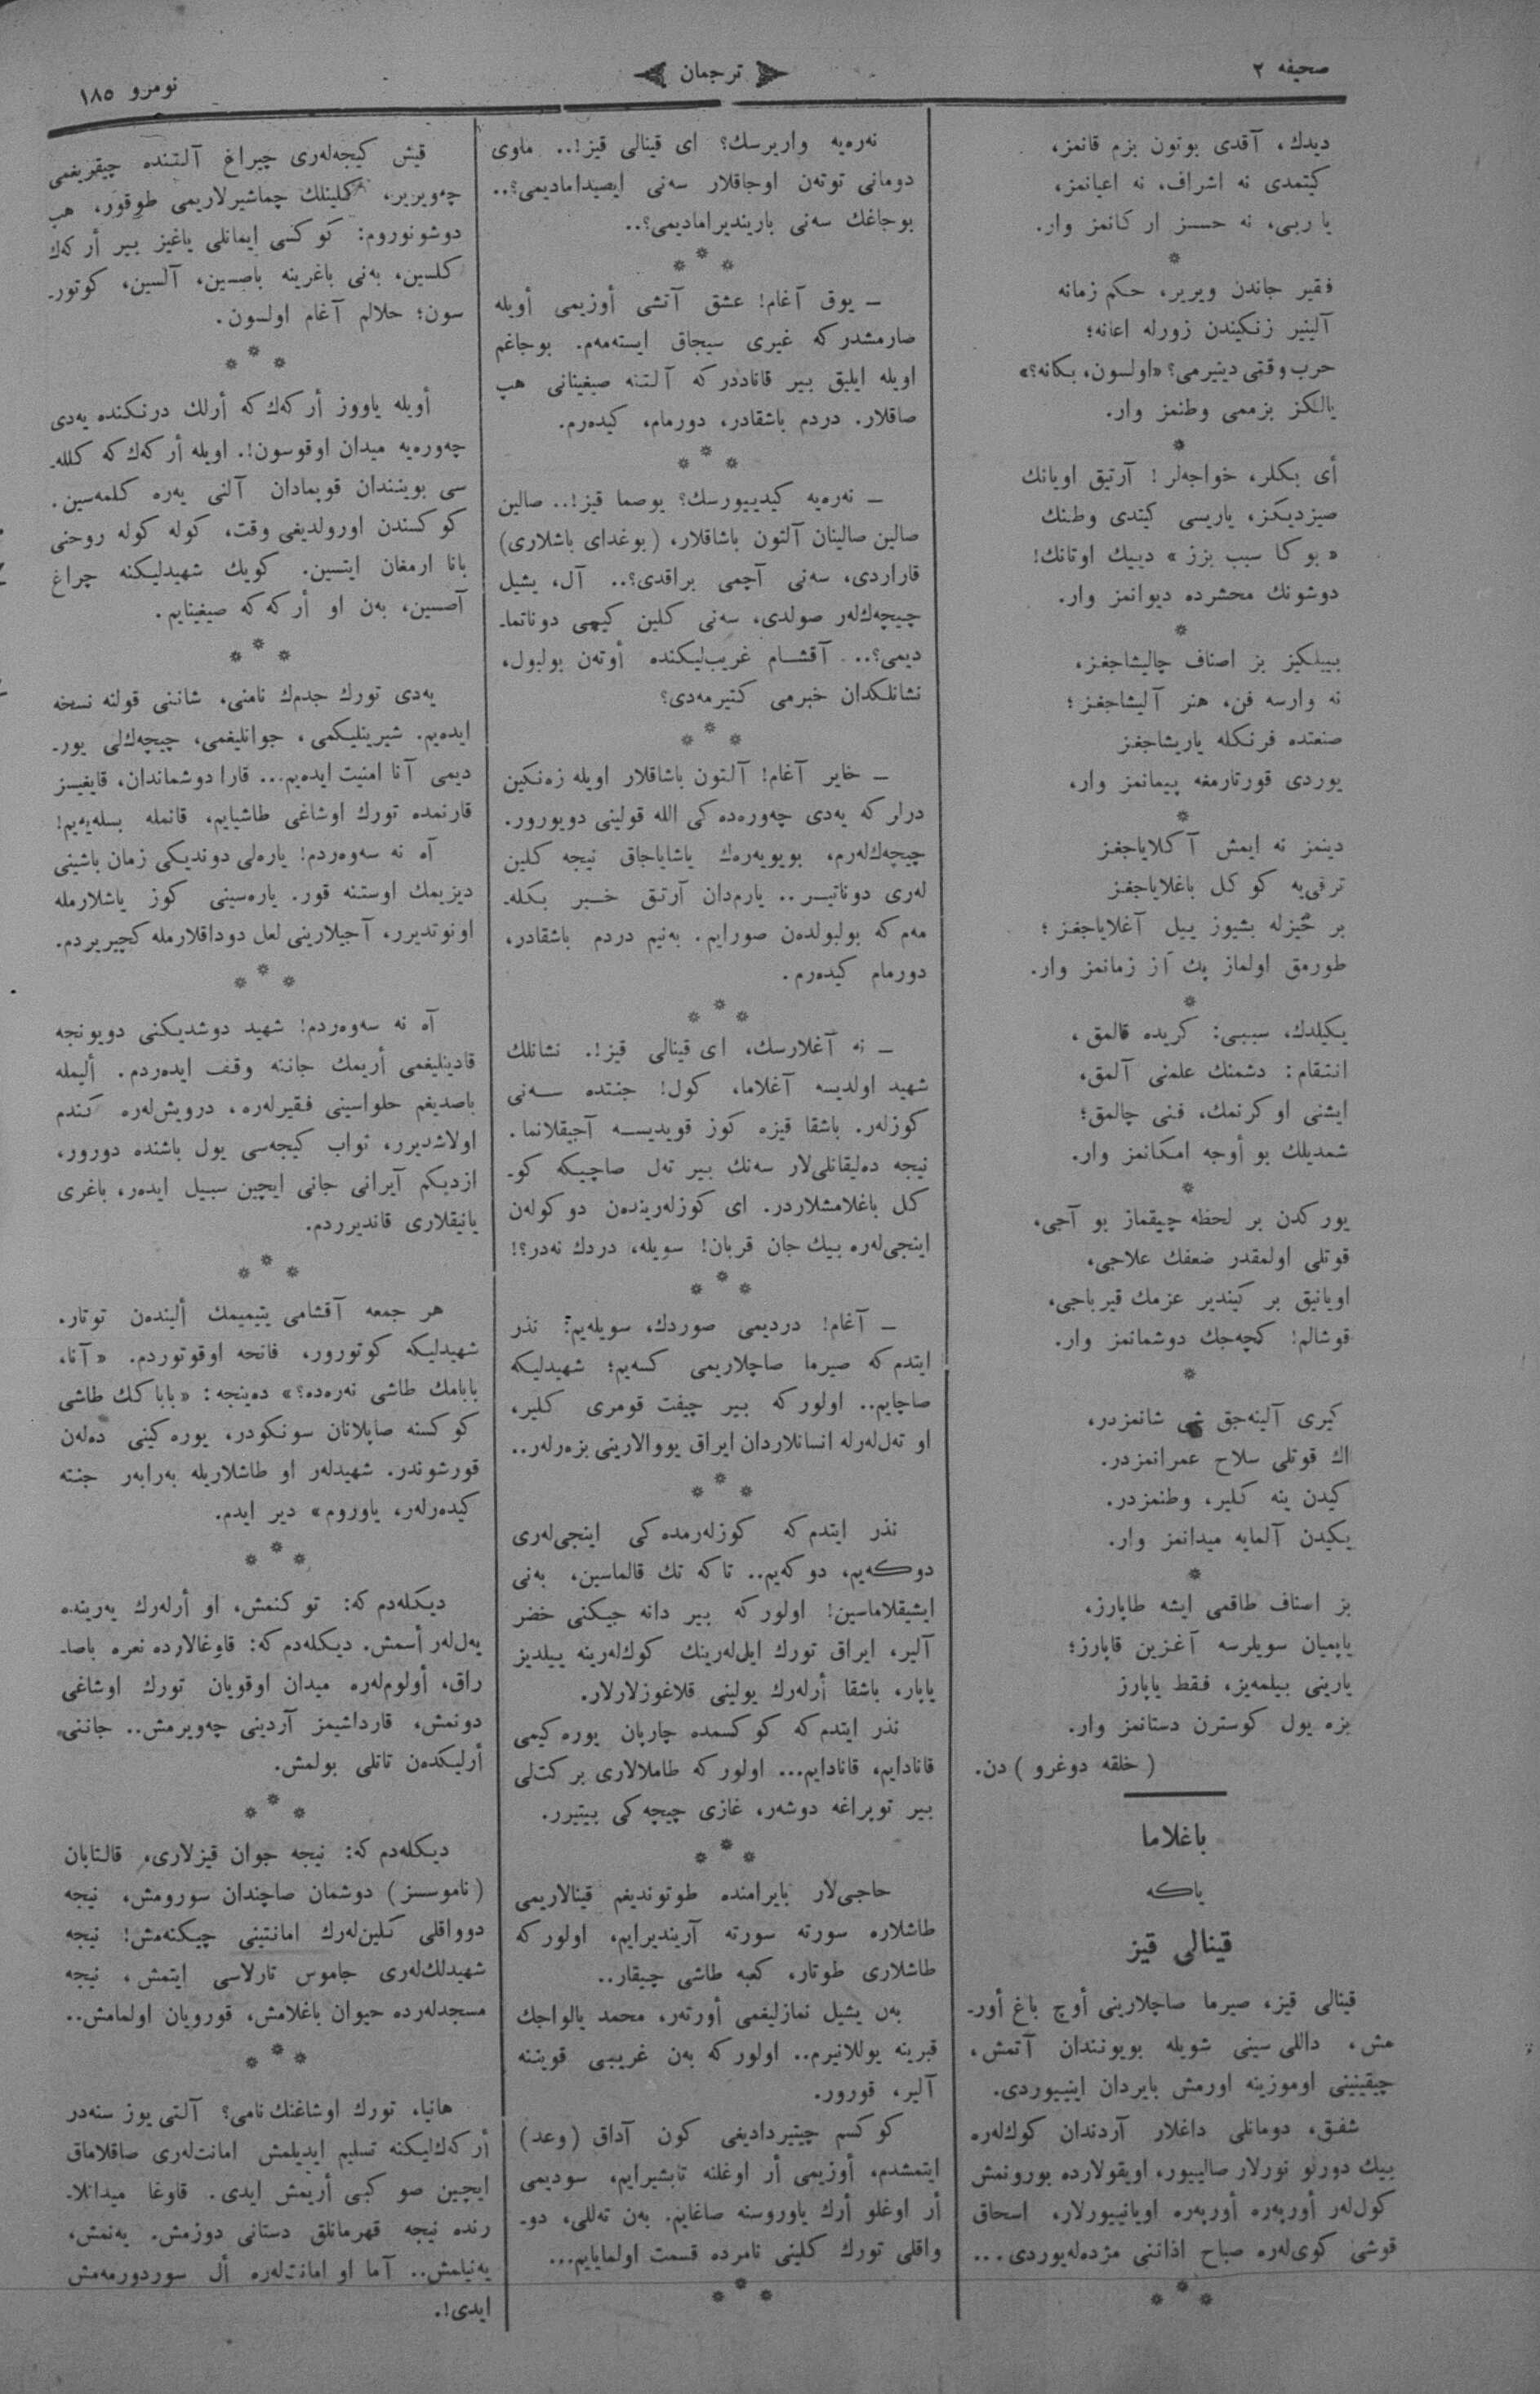 صحیفه ٢
ترجمان
نومرو ١٨٥
دیدك، آقدی بوتون بزم قانمز،
كیتمدی نه اشراف، نه اعیانمز،
یا ربی، نه حسز ار كانمز وار.
فقیر جاندن ویریر، حكم زمانه
آلینیر زنكیندن زورله اعانه؛
حرب وقتی دینیرمی؟ «اولسون، بكانه؟»
یالكز بزممی وطنمز وار.
أی بكلر، خواجه‌لر! آرتیق اویانك
صیزدیكز، یاریسی كیتدی وطنك
« بو كا سبب بزز » دییك اوتانك!
دوشونك محشرده دیوانمز وار.
بیبلكیز بز اصناف چالیشاجغز،
نه وارسه فن، هنر آلیشاجغز؛
صنعتده فرنكله یاریشاجغز
یوردی قورتارمغه پیمانمز وار،
دینمز نه ایمش آ كلایاجغز
ترقی‌یه كو كل باغلایاجغز
بر كیزله بشیوز ییل آغلایاجغز؛
طورمق اولماز پك آز زمانمز وار.
یكیلدك، سببی: كریده قالمق،
انتقام: دشمنك علمنی آلمق،
ایشنی او كرنمك، فنی چالمق؛
شمدیلك بو أوجه امكانمز وار.
یور كدن بر لحظه چیقماز بو آجی،
قوتلی اولمقدر ضعفك علاجی،
اویانیق بر كیندیر عزمك قیرباجی،
قوشالم! كچه‌جك دوشمانمز وار.
كیری آلینه‌جق شی شانمزدر،
اك قوتلی سلاح عمرانمزدر.
كیدن ینه كلیر، وطنمزدر.
یكیدن آلمایه میدانمز وار.
بز اصناف طاقمی ایشه طاپارز،
یاپمیان سویلرسه آغزین قاپارز؛
یارینی بیلمه‌یز، فقط یاپارز
بزه یول كوسترن دستانمز وار.
( خلقه دوغرو ) دن.
باغلاما
یاكه
قینالی قیز
قینالی قیز، صیرما صاچلارینی أوچ باغ أور-
مش، داللی سینی شویله بویونندان آتمش،
چیقینینی اوموزینه اورمش بایردان اینییوردی.
شفق، دومانلی داغلار آردندان كوك‌لەره
بیك دورلو نورلار صالییور، اویقولارده بورونمش
كول‌لەر أورپەره أورپەره اویانییورلار، اسحاق
قوشی كوی‌لەره صباح اذاننی مژده‌له‌یوردی...
نەرەیه واریرسك؟ ای قینالی قیز!.. ماوی
دومانی توتەن اوجاقلار سەنی ایصیدامادیمی؟..
بوجاغك سەنی باریندیرامادیمی؟..
ـ یوق آغام! عشق آتشی أوزیمی أویله
صارمشدر كه غیری سیجاق ایستەمەم. بوجاغم
اویله ایلیق بیر قاناددر كه آلتنه صیغینانی هپ
صاقلار. دردم باشقادر، دورمام، كیدەرم.
ـ نەرەیه كیدییورسك؟ یوصما قیز!.. صالین
صالین صالینان آلتون باشاقلار، (بوغدای باشلاری)
قاراردی، سەنی آچمی براقدی؟.. آل، یشیل
چیچەك‌لەر صولدی، سەنی كلین كیمی دوناتما-
دیمی؟.. آقشام غریب‌لیكنده أوتەن بولبول،
نشانلكدان خبرمی كتیرمەدی؟
ـ خایر آغام! آلتون باشاقلار اویله زەنكین
درلر كه یەدی چەورەده كی الله قولینی دویورور.
چیچەك‌لەرم، بویویەرەك یاشایاجاق نیجه كلین
لەری دوناتیر.. یارم‌دان آرتق خبر بكله-
مەم كه بولبولدەن صورایم. بەنیم دردم باشقادر،
دورمام كیدەرم.
ـ نه آغلارسك، ای قینالی قیز!. نشانلك
شهید اولدیسه آغلاما، كول! جنتده سەنی
كوزلەر. باشقا قیزه كوز قویدیسه آجیقلانما.
نیجه دەلیقانلی‌لار سەنك بیر تەل صاچیكه كو-
كل باغلامشلاردر. ای كوزلەریندەن دو كولەن
اینجی‌لەره بیك جان قربان! سویله، دردك نەدر؟!
ـ آغام! دردیمی صوردك، سویلەیم: نذر
ایتدم كه صیرما صاچلاریمی كسەیم؛ شهیدلیكه
صاچایم.. اولور كه بیر چیفت قومری كلیر،
او تەل‌لەرله انسانلاردان ایراق یووالارینی بزەرلەر..
نذر ایتدم كه كوزلەرمده كی اینجی‌لەری
دوكەیم، دو كەیم.. تا كه تك قالماسین، بەنی
ایشیقلاماسین! اولور كه بیر دانه جیكنی خضر
آلیر، ایراق تورك ایلی‌لەرینك كوك‌لەرینه ییلدیز
یاپار، باشقا أرلەرك یولینی قلاغوزلارلار.
نذر ایتدم كه كو كسمده چارپان یوره كیمی
قانادایم، قانادایم... اولور كه طاملالاری بركت‌لی
بیر توپراغه دوشەر، غازی چیچه كی بیتیرر.
حاجی‌لار بایرامنده طوتوندیغم قینالاریمی
طاشلاره سورته سورته آریندیرایم، اولور كه
طاشلاری طوتار، كعبه طاشی چیقار..
بەن یشیل نمازلیغمی أورتەر، محمد یالواجك
قبرینه یوللانیرم.. اولور كه بەن غریبی قویننه
آلیر، قورور.
كو كسم چیتیردادیغی كون آداق (وعد)
ایتمشدم، أوزیمی أر اوغلنه تاپشیرایم، سودیمی
أر اوغلو أرك یاوروسنه صاغایم. بەن تەللی، دو-
واقلی تورك كلینی نامرده قسمت اولمایایم...
قیش كیجەلەری چیراغ آلتنده چیقریغمی
چەویریر، كلینلك چماشیرلاریمی طوقور، هپ
دوشونوروم: كو كسی ایمانلی یاغیز بیر أر كەك
كلسین، بەنی باغرینه باصسین، آلسین، كوتور-
سون؛ حلالم آغام اولسون.
أویله یاووز أر كەك كه أرلك درنكنده یەدی
چەورەیه میدان اوقوسون!. اویله أر كەك كه كلله-
سی بویبندان قوبمادان آلنی یەره كلمەسین.
كو كسندن اورولدیغی وقت، كوله كوله روحنی
بانا ارمغان ایتسین. كویك شهیدلیكنه چراغ
آصسین، بەن او أر كه كه صیغینایم.
یەدی تورك جدم‌ك نامنی، شاننی قولنه نسخه
ایدەیم. شیرینلیكمی، جوانلیغمی، چیچەكلی یور-
دیمی آنا امنیت ایدەیم... قارا دوشماندان، قایغیسز
قارنمده تورك اوشاغی طاشیایم، قانمله بسله‌یەیم!
آه نه سەوەردم! یارەلی دوندیكی زمان باشینی
دیزیمك اوستنه قور. یارەسینی كوز یاشلارمله
اونوتدیرر، آجیلارینی لعل دوداقلارمله كچیریردم.
آه نه سەوەردم! شهید دوشدیكنی دویونجه
قادینلیغمی أریمك جاننه وقف ایدەردم. ألیمله
باصدیغم حلواسینی فقیرلەره، درویش‌لەره كندم
اولاشدیرر، ثواب كیجەسی یول باشنده دورور،
ازدیكم آیرانی جانی ایچین سبیل ایدەر، باغری
یانیقلاری قاندیرردم.
هر جمعه آقشامی یتیمیمك ألیندەن توتار.
شهیدلیكه كوتورور، فاتحه اوقوتوردم. « آنا،
بابامك طاشی نەرەده؟» دەینجه: « بابا كك طاشی
كو كسنه صاپلانان سونكودر، یوره كینی دەلەن
قورشوندر. شهیدلەر او طاشلاریله بەرابەر جنته
كیدەرلەر، یاوروم» دیر ایدم.
دیكلەدم كه: تو كنمش، او أرلەرك یەرینده
یەل‌لەر أسمش. دیكلەدم كه: قاوغالارده نعره باصا-
راق، أولوم‌لەره میدان اوقویان تورك اوشاغی
دونمش، قارداشیمز آردینی چەویرمش.. جاننی
أرلیكدەن تاتلی بولمش.
دیكلەدم كه: نیجه جوان قیزلاری، قالتابان
(ناموسسز) دوشمان صاچندان سورومش، نیجه
دوواقلی كلین‌لەرك امانتینی چیكنەمش! نیجه
شهیدلك‌لەری جاموس تارلاسی ایتمش، نیجه
مسجدلەرده حیوان باغلامش، قورویان اولمامش..
هانیا، تورك اوشاغنك نامی؟ آلتی یوز سنەدر
أر كەك‌لیكنه تسلیم ایدیلمش امانت‌لەری صاقلاماق
ایچین صو كبی أریمش ایدی. قاوغا میدانلا-
رنده نیجه قهرمانلق دستانی دوزمش. یەنمش،
یەنیلمش.. آما او امانت‌لەره أل سوردورمەمش
ایدی!.